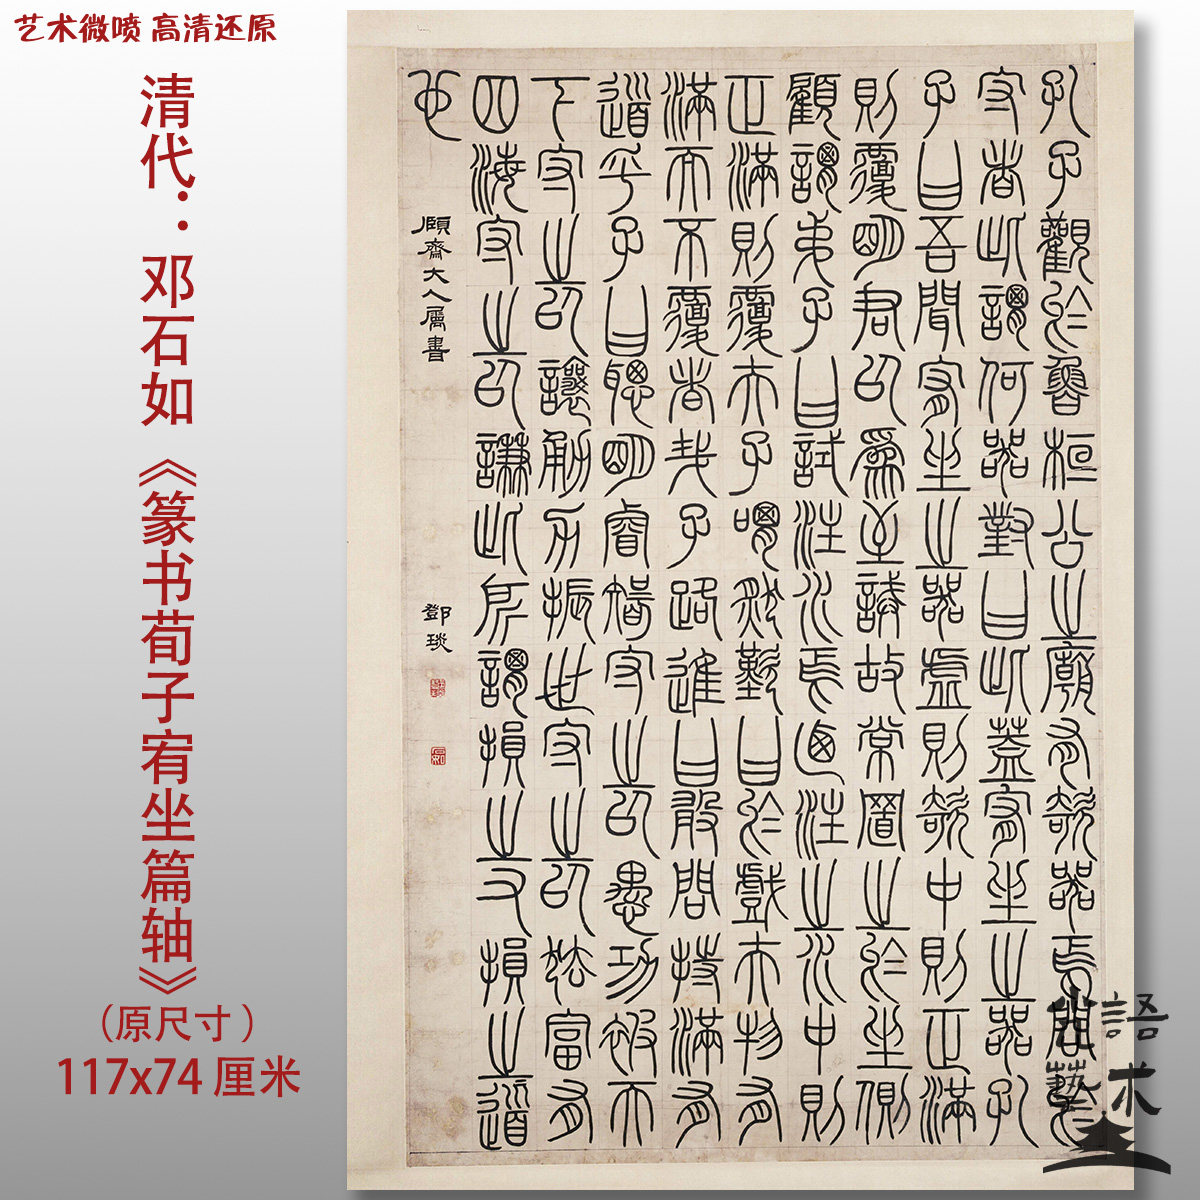 艺术微喷 高清还原
清代：邓石如《篆书荀子宥坐篇轴》
（原尺寸）
117x74厘米
孔子觀於魯桓公之廟有欹器焉問於
守者此謂何器對曰此蓋宥坐之器孔
子曰吾聞宥坐之器虛則欹中則正滿
則覆明君以為至誡故常置之於坐側
顧謂弟子曰試注水焉迺注之水中則
正滿則覆夫子喟然歎曰於戲夫物有
滿而不覆者哉子路進曰敢問持滿有
道乎子曰聰明睿智守之以愚功被天
下守之以讓勇力振世守之以怯富有
四海守之以謙此所謂損之又損之道
也
頤齋大人屬書
鄧琰